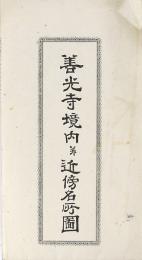 善光寺境内並近傍名所圖